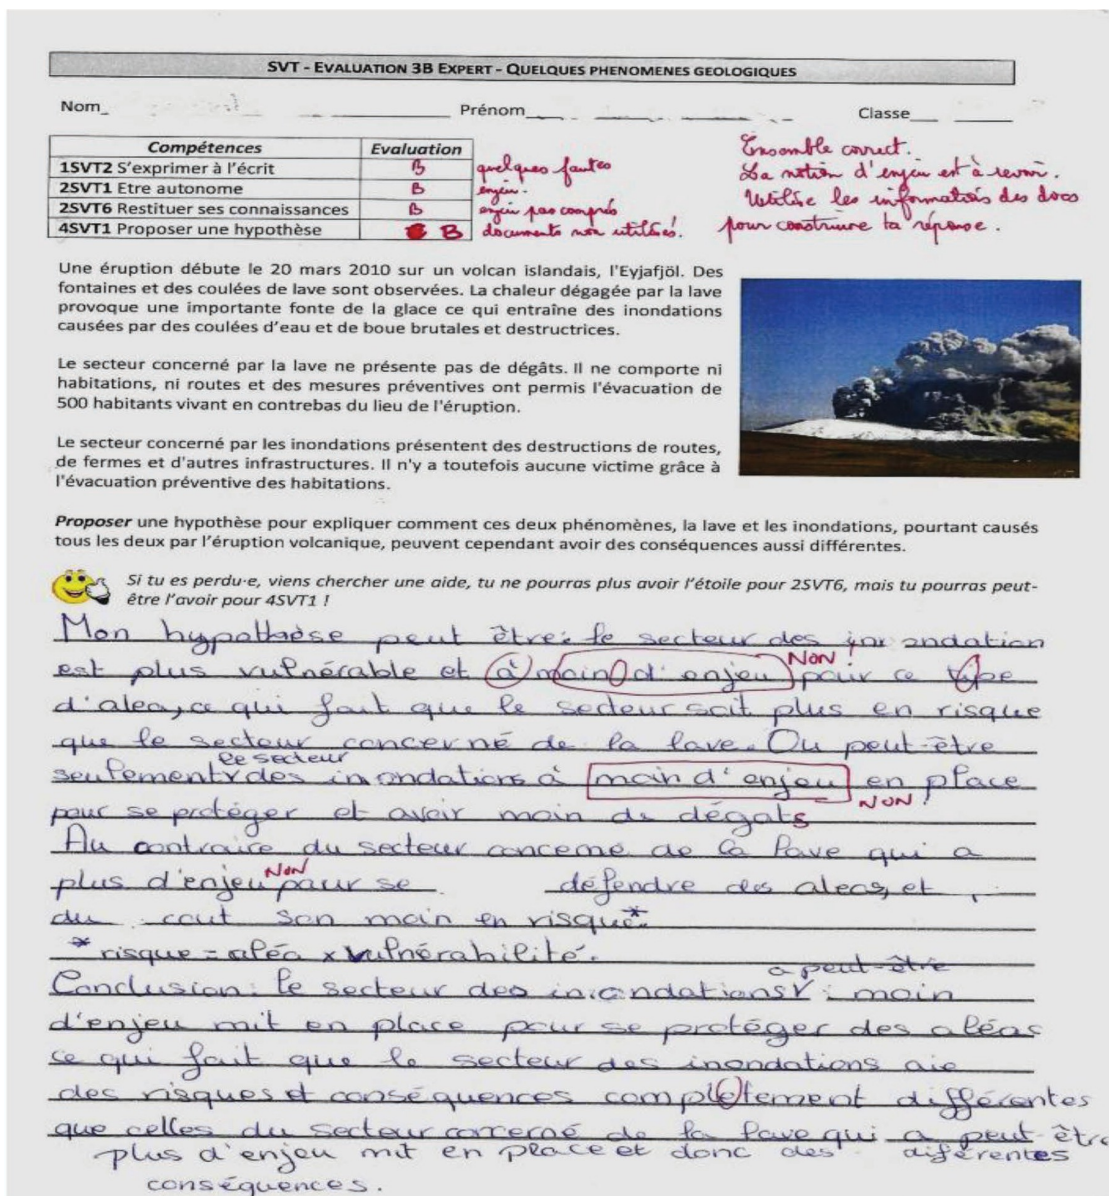 SVT - EVALUATION 3B EXPERT - QUELQUES PHENOMENES GEOLOGIQUES
Nom_ Prénom Classe
Compétences Evaluation
1SVT2 S'exprimer à l'écrit B quelques fautes
2SVT1 Etre autonome B enjeu.
2SVT6 Restituer ses connaissances B enjeu pas compris
4SVT1 Proposer une hypothèse B documents non utilisés.
Ensemble correct.
La notion d'enjeu est à revoir.
Utilise les informations des docs
pour construire ta réponse.
Une éruption débute le 20 mars 2010 sur un volcan islandais, l'Eyjafjöl. Des
fontaines et des coulées de lave sont observées. La chaleur dégagée par la lave
provoque une importante fonte de la glace ce qui entraîne des inondations
causées par des coulées d'eau et de boue brutales et destructrices.
Le secteur concerné par la lave ne présente pas de dégâts. Il ne comporte ni
habitations, ni routes et des mesures préventives ont permis l'évacuation de
500 habitants vivant en contrebas du lieu de l'éruption.
Le secteur concerné par les inondations présentent des destructions de routes,
de fermes et d'autres infrastructures. Il n'y a toutefois aucune victime grâce à
l'évacuation préventive des habitations.
Proposer une hypothèse pour expliquer comment ces deux phénomènes, la lave et les inondations, pourtant causés
tous les deux par l'éruption volcanique, peuvent cependant avoir des conséquences aussi différentes.
Si tu es perdu·e, viens chercher une aide, tu ne pourras plus avoir l'étoile pour 2SVT6, mais tu pourras peut-
être l'avoir pour 4SVT1 !
Mon hypothèse peut être: le secteur des inondation
est plus vulnérable et à moin d'enjeu NON ! pour ce tipe
d'alea, ce qui fait que le secteur soit plus en risque
que le secteur concerné de la lave. Ou peut-être
seulement le secteur des inondations à moin d'enjeu en place
NON !
pour se protéger et avoir moin de dégats
Au contraire du secteur concerné de la lave qui a
plus d'enjeu NON pour se défendre des aleas, et
du cout son moin en risque*
* risque = aléa x vulnérabilité.
Conclusion: le secteur des inondations a peut-être : moin
d'enjeu mit en place pour se protéger des aléas
ce qui fait que le secteur des inondations aie
des risques et conséquences completement différentes
que celles du secteur concerné de la lave qui a peut être
plus d'enjeu mit en place et donc des diférentes
conséquences.